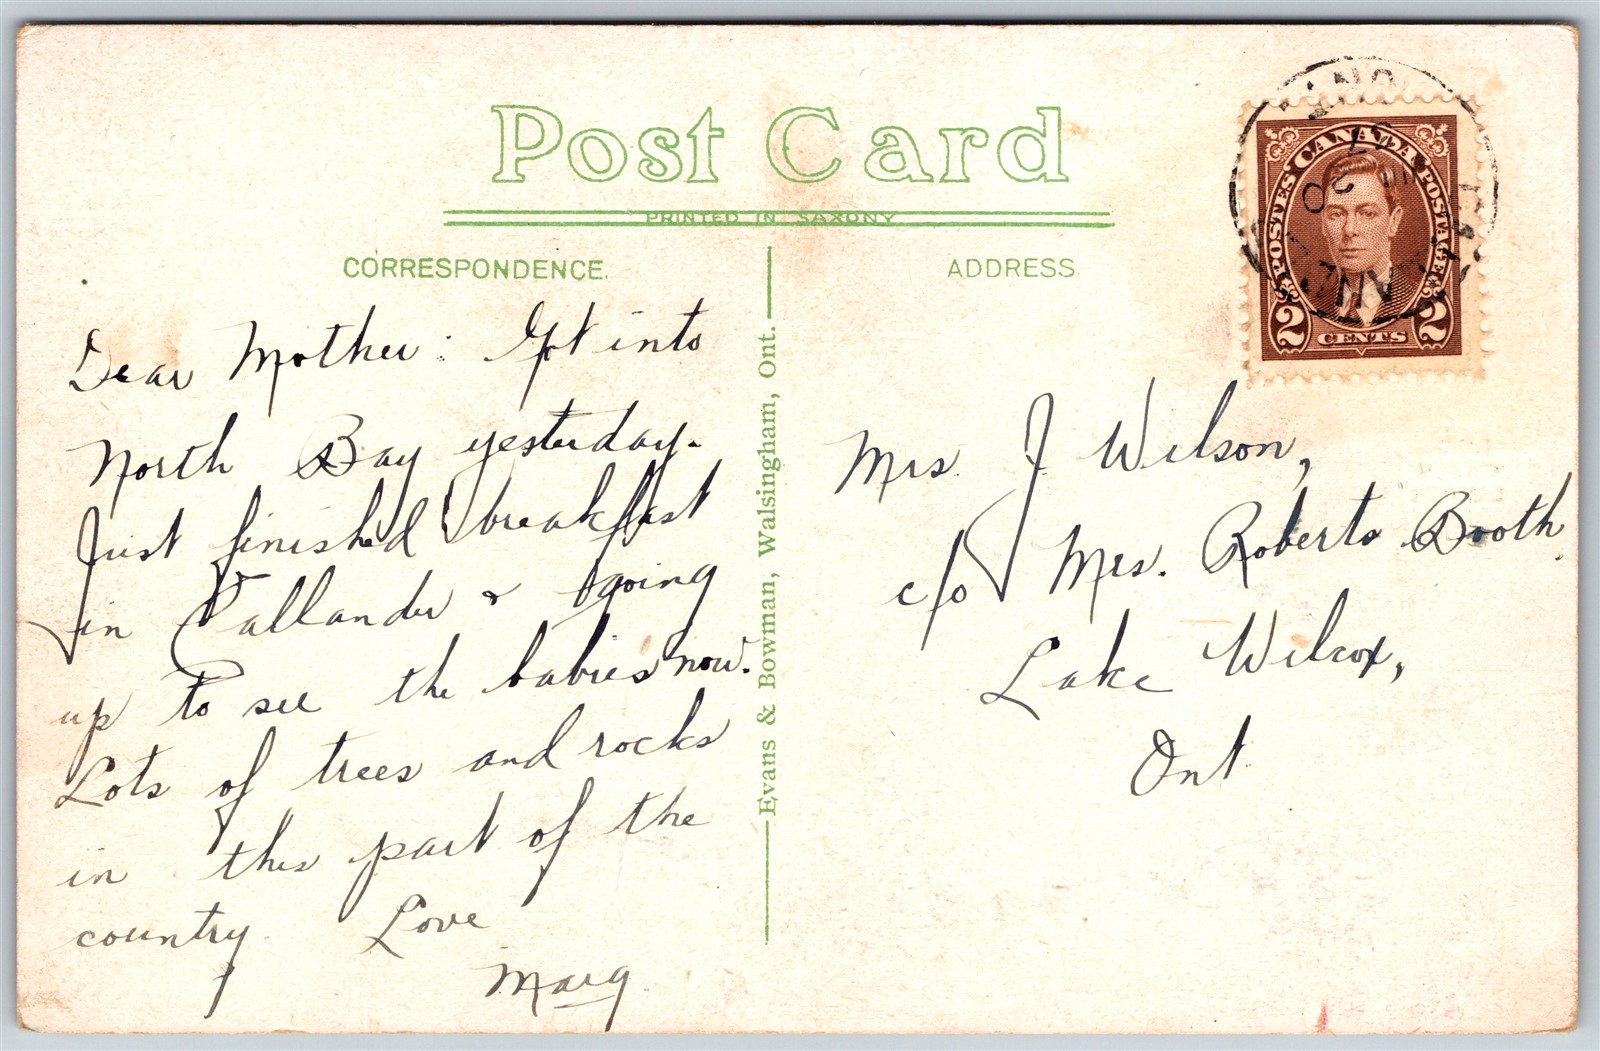 Post Card
PRINTED IN SAXONY
CORRESPONDENCE.
ADDRESS
Dear Mother: Got into
North Bay yesterday.
Just finished breakfast
in Callander & going
up to see the babies now.
Lots of trees and rocks
in this part of the
country Love
Marg
Evans & Bowman, Walsingham, Ont.
Mrs J Wilson,
c/o Mrs. Roberts Booth
Lake Wilcox,
Ont
CANADA
POSTES POSTAGE
2 CENTS 2
ONT
20
37